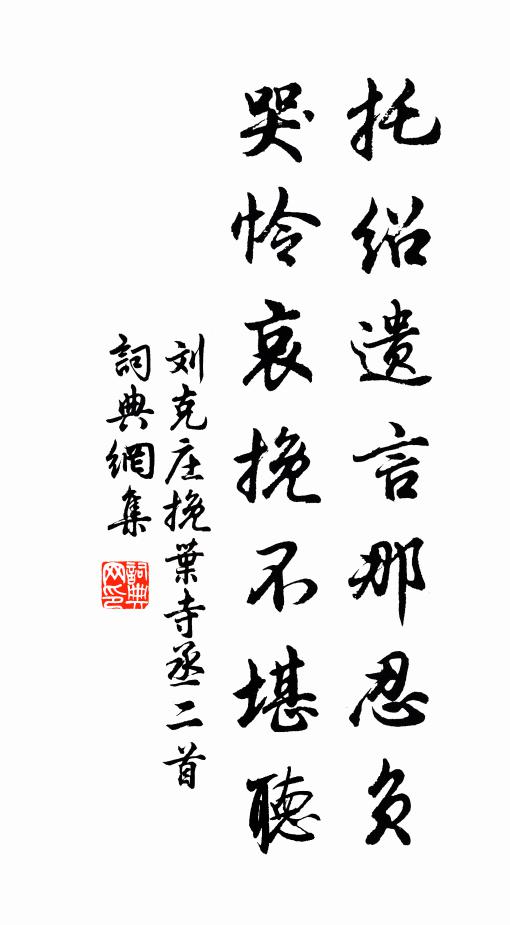 托绍遗言那忍负
哭怜哀挽不堪聽
刘克庄挽葉寺丞二首
詞典網集
詞典网印